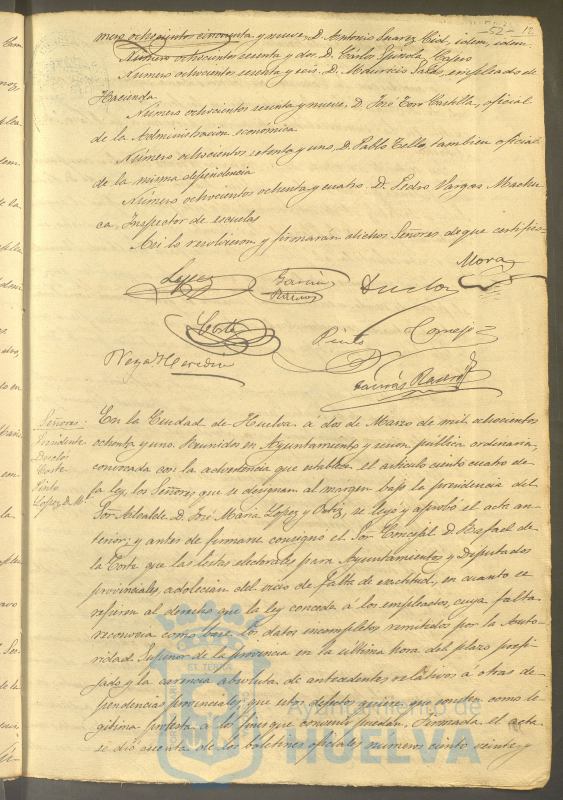 52 - 12
mero ochocientos cincuenta y nueve, D. Antonio Suarez Cid, idem, idem.
Número ochocientos sesenta y dos. D. Cárlos Spínola
Número ochocientos sesenta y seis. D. Mauricio Sales, empleado de
Hacienda
Número ochocientos sesenta y nueve. D. José Toro Castilla, oficial
de la Administracion económica
Número ochocientos setenta y uno, D. Pablo Tello, tambien oficial
de la misma dependencia
Número ochocientos ochenta y cuatro. D. Pedro Vargas Machu-
ca, Inspector de escuelas
Asi lo resolvieron y firmarán dichos Señores de que certifico=
Mora
Lopez
Garcia
Ramos
Duclos
Corte
Pinto
Cornejo
Vega Heredia
Señores:
Presidente
Duclós
Corte
Pinto
Lopez D. M.
En la Ciudad de Huelva á dos de Marzo de mil ochocientos
ochenta y uno. Reunidos en Ayuntamiento y sesion pública ordinaria,
convocada con la advertencia que establece el artículo ciento cuatro de
la ley, los Señores que se designan al margen bajo la presidencia del
Sor Alcalde D. José María Lopez y Ortiz, se leyó y aprobó el acta an-
terior; y antes de firmarse consignó el Sor Concejal D. Rafael de
la Corte que las listas electorales para Ayuntamientos y Diputados
provinciales adolecian del vicio de falta de exactitud, en cuanto se
refieren al derecho que la ley concede á los empleados, cuya falta
reconocia como base los datos incompletos remitidos por la Auto-
ridad Superior de la provincia en la última hora del plazo prefi-
jado y la carencia absoluta de antecedentes relativos á otras de-
pendencias provinciales, que
gítima protesta á los fines que convenir puedan. Firmada el acta
se dió cuenta de los boletines oficiales números ciento veinte y
Ayuntamiento de
HUELVA